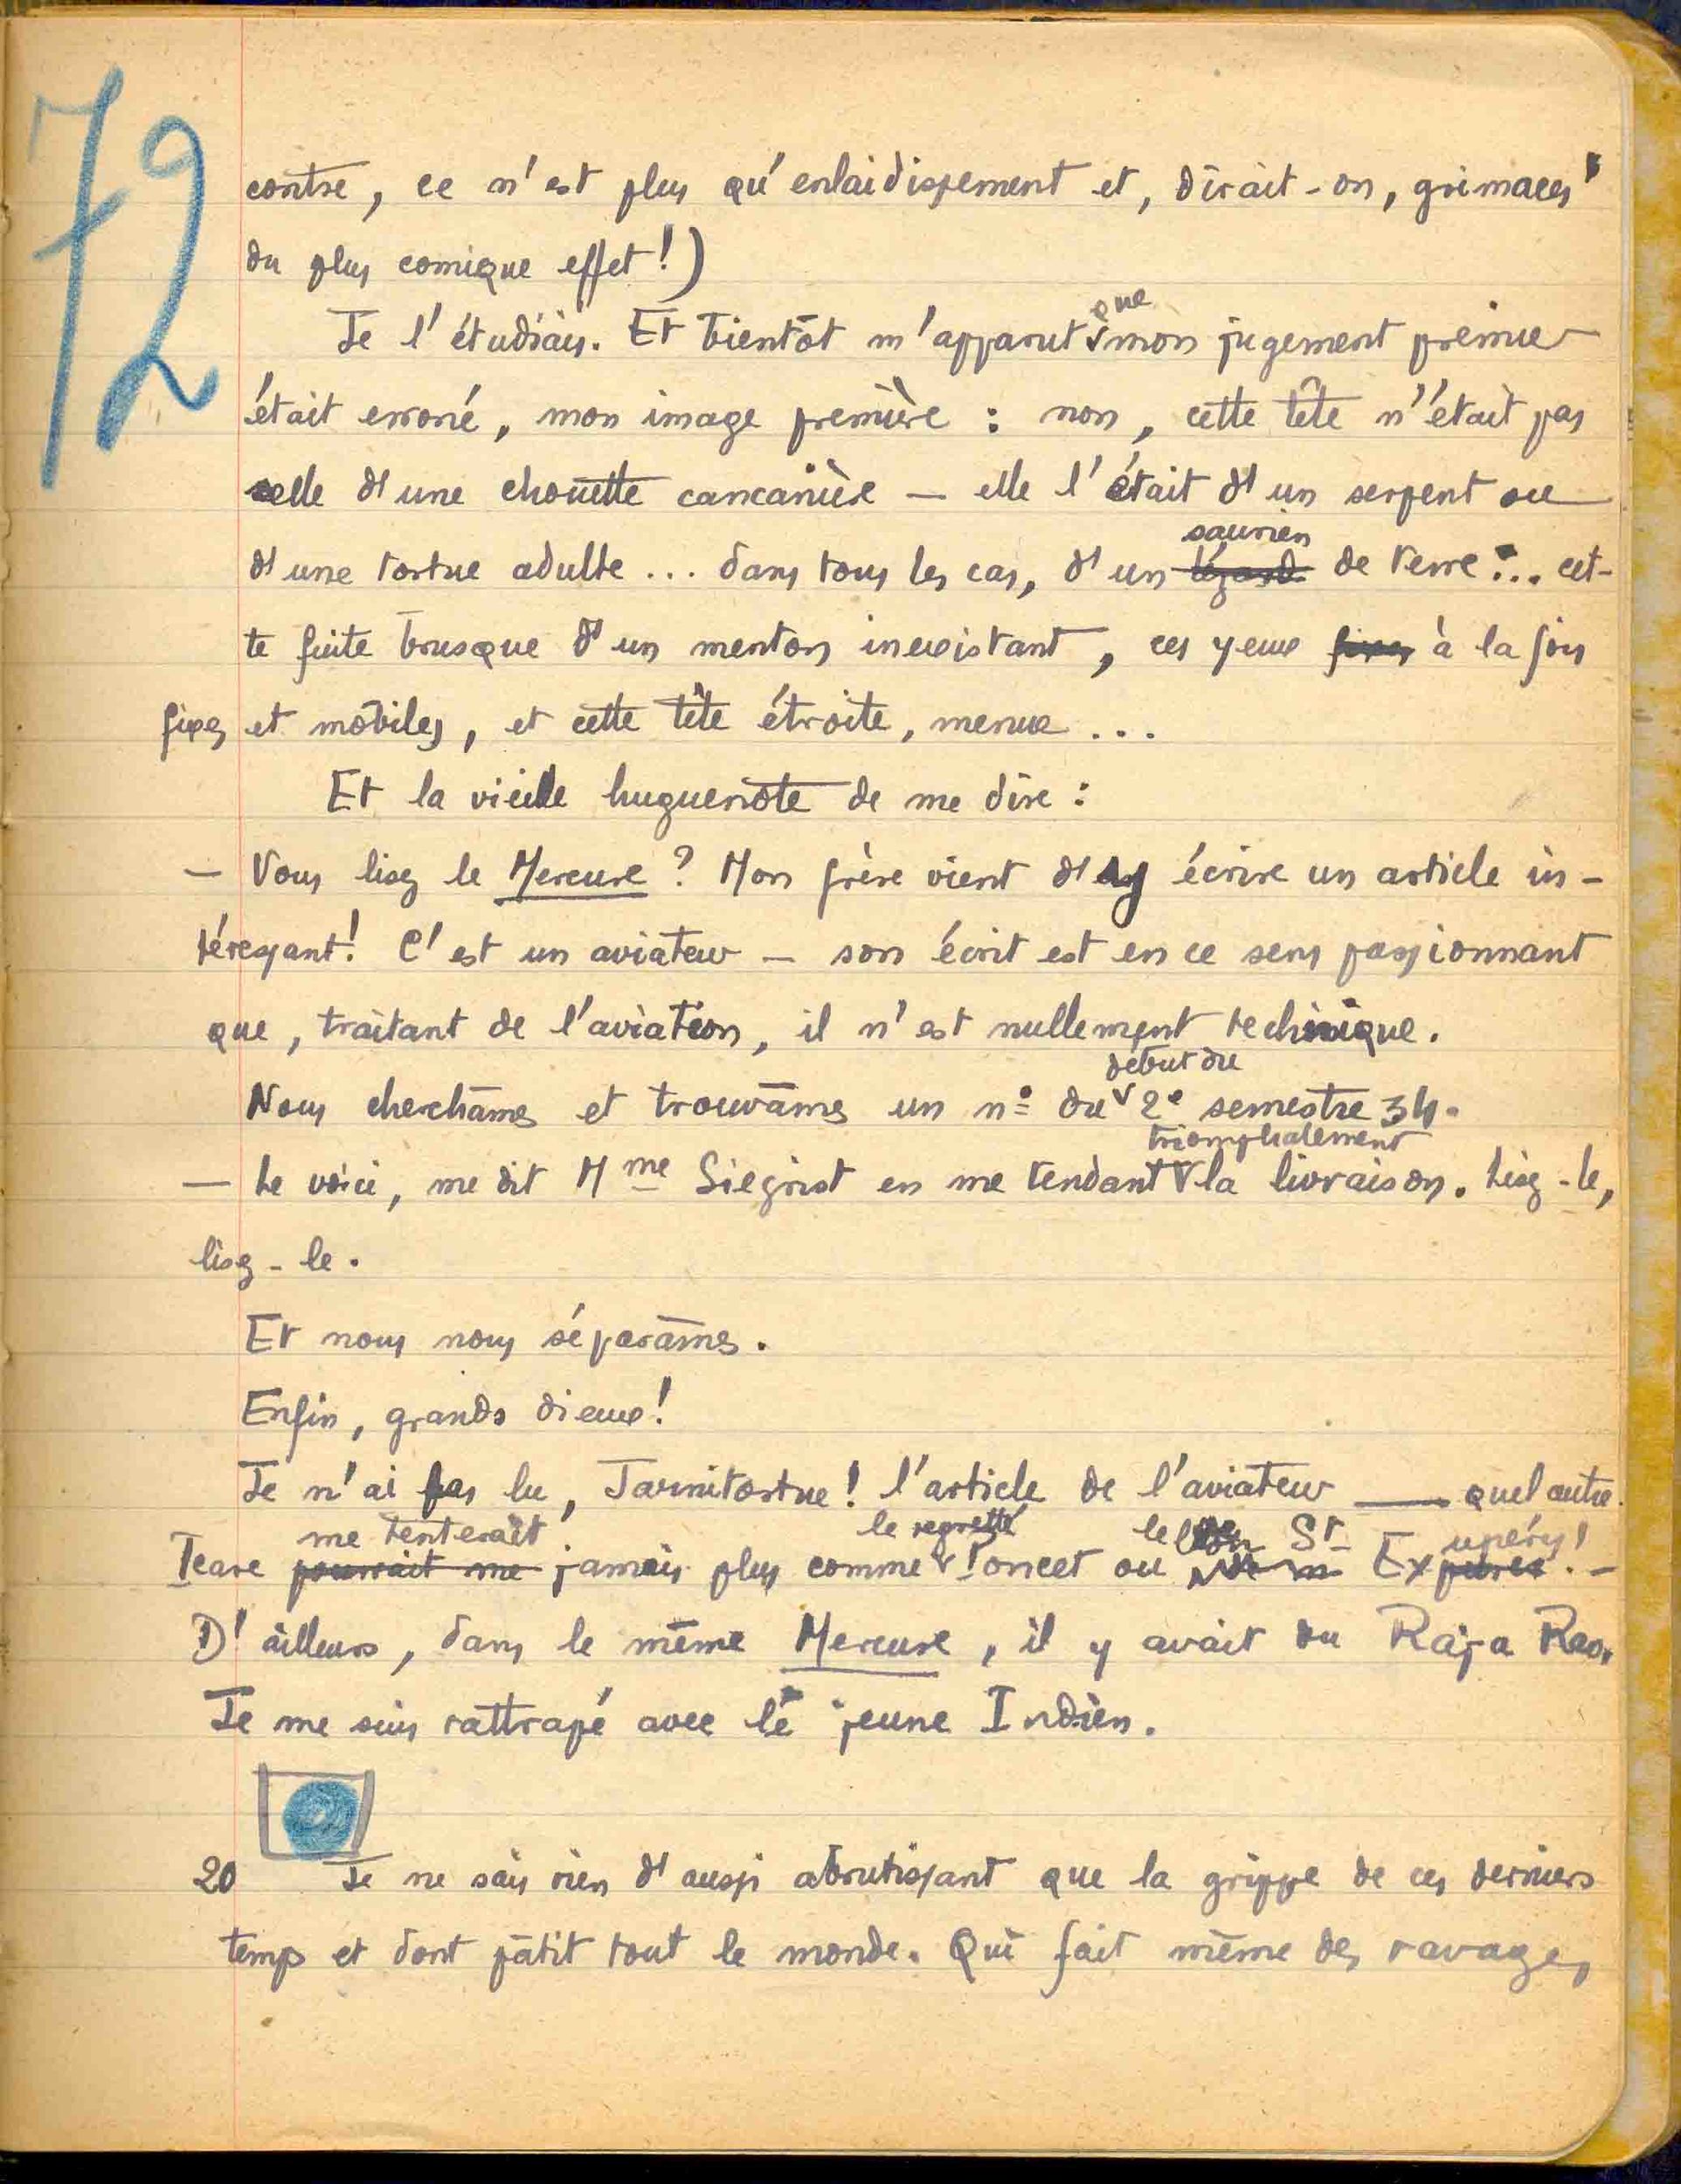 72
contre, ce n'est plus qu'enlaidissement et, dirait-on, grimaces
du plus comique effet!)
Je l'étudiais. Et bientôt m'apparut que mon jugement premier
était erroné, mon image première : non, cette tête n'était pas
celle d'une chouette cancanière — elle l'était d'un serpent ou
d'une tortue adulte... dans tous les cas, d'un lézard saurien de verre... cet-
te fuite brusque d'un menton inexistant, ces yeux fixes à la fois
fixes et mobiles, et cette tête étroite, menue...
Et la vieille huguenote de me dire :
— Vous lisez le Mercure ? Mon frère vient d'y écrire un article in-
téressant! C'est un aviateur — son écrit est en ce sens passionnant
que, traitant de l'aviation, il n'est nullement technique.
Nous cherchâmes et trouvâmes un nº du début du 2e semestre 34.
— Le voici, me dit Mme Siegrist en me tendant triomphalement la livraison. Lisez-le,
lisez-le.
Et nous nous séparâmes.
Enfin, grands dieux!
Je n'ai pas lu, Jarnitortue! l'article de l'aviateur — quel autre
Icare pourrait me me tenterait jamais plus comme le regretté Poncet ou le St-Exupéry! —
D'ailleurs, dans le même Mercure, il y avait du Raja Rao.
Je me suis rattrapé avec le jeune Indien.
20 Je ne sais rien d'aussi abrutissant que la grippe de ces derniers
temps et dont pâtit tout le monde. Qui fait même des ravages